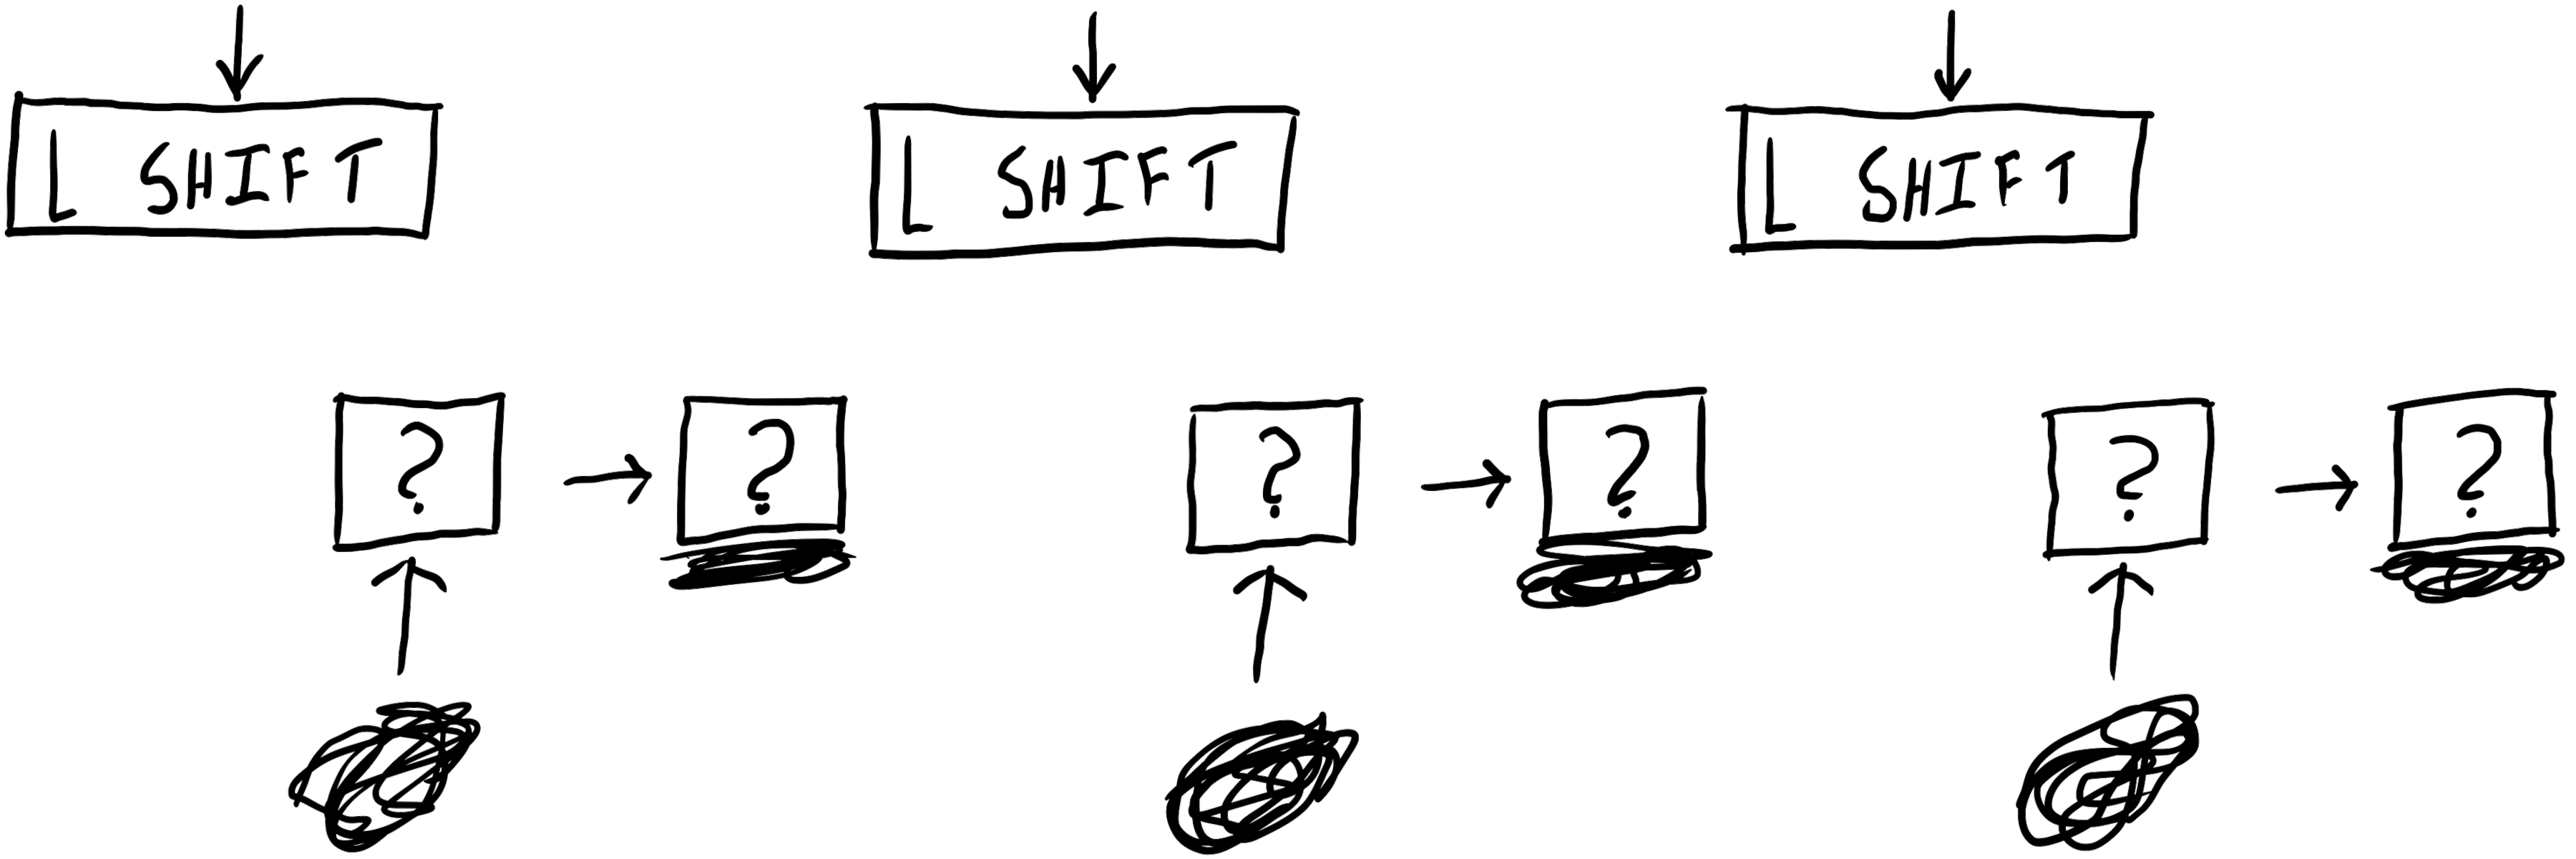 L SHIFT L SHIFT L SHIFT
? ? ? ? ? ?